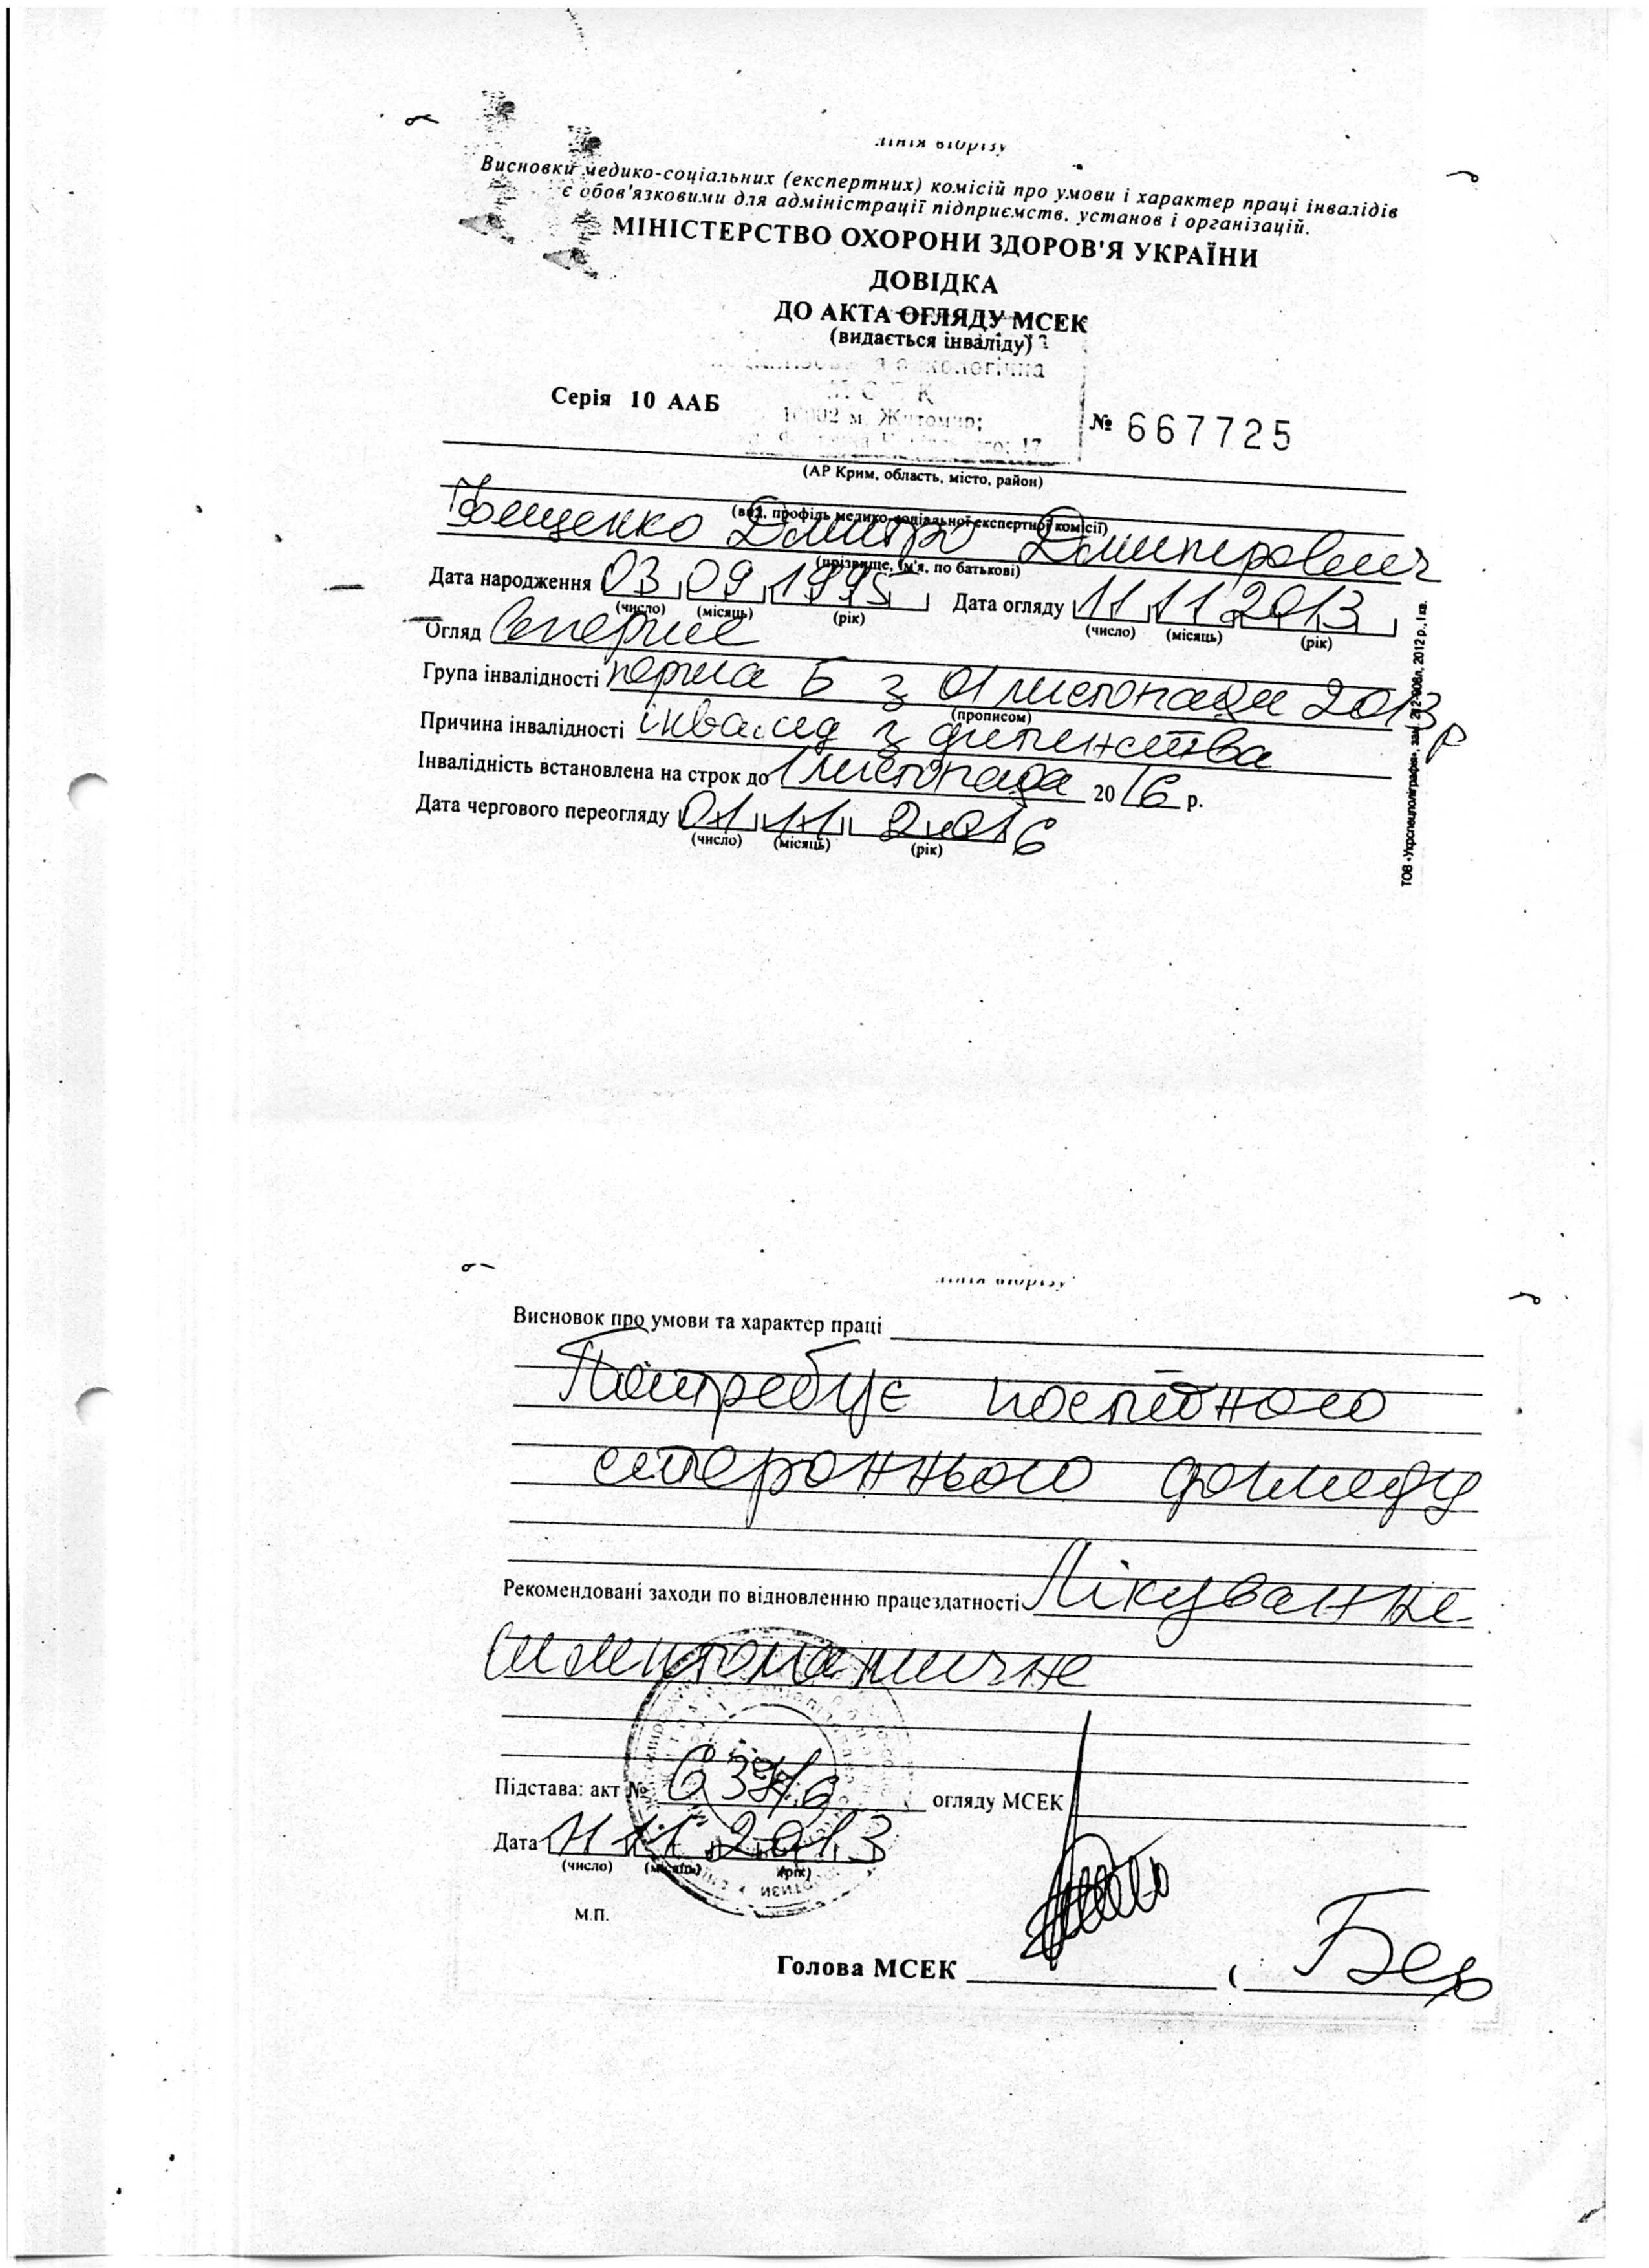 лінія відрізу
Висновки медико-соціальних (експертних) комісій про умови і характер праці інвалідів
є обов'язковими для адміністрації підприємств, установ і організацій.
МІНІСТЕРСТВО ОХОРОНИ ЗДОРОВ'Я УКРАЇНИ
ДОВІДКА
ДО АКТА ОГЛЯДУ МСЕК
(видається інваліду)
онкологічна
МСЕК
10002 м. Житомир;
17
Серія 10 ААБ № 667725
(АР Крим, область, місто, район)
(вид, профіль медико-соціальної експертної комісії)
Фещенко Дмитро Дмитрович
(прізвище, ім'я, по батькові)
Дата народження 03 09 1995 Дата огляду 11 11 2013
(число) (місяць) (рік) (число) (місяць) (рік)
Огляд Вперше
Група інвалідності перша Б з 01 листопада 2013 р
(прописом)
Причина інвалідності інвалід з дитинства
Інвалідність встановлена на строк до 1 листопада 2016 р.
Дата чергового переогляду 01 11 2016
(число) (місяць) (рік)
ТОВ «Укрспецполіграфія», зам. 212-906л, 2012 р., І кв.
лінія відрізу
Висновок про умови та характер праці
Потребує постійного
стороннього догляду
Рекомендовані заходи по відновленню працездатності Лікування
симптоматичне
Підстава: акт № огляду МСЕК
Дата 11 11 2013
(число) (місяць) (рік)
М.П.
Голова МСЕК (